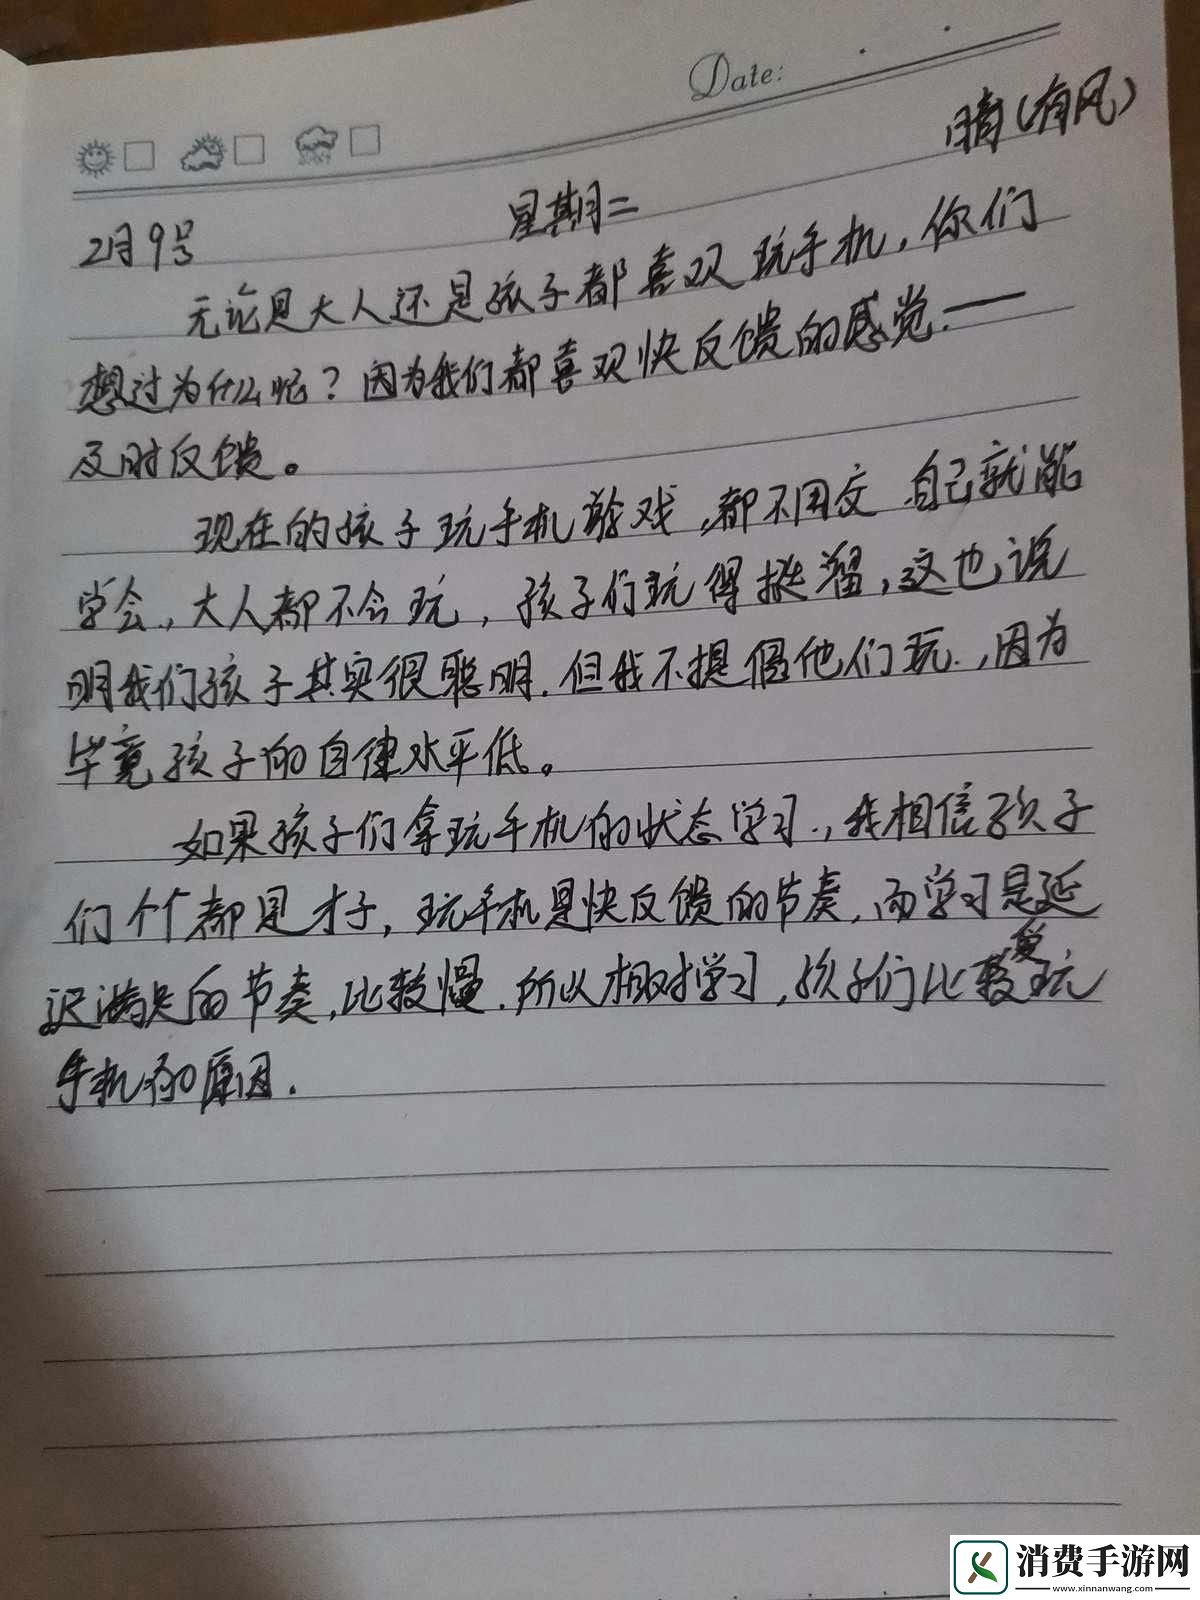 Date:
晴(有风)
2月9号 星期二
无论是大人还是孩子都喜欢玩手机,你们
想过为什么呢?因为我们都喜欢快反馈的感觉.——
及时反馈。
现在的孩子玩手机游戏,都不用交 自己就能
学会,大人都不会玩,孩子们玩得挺溜,这也说
明我们孩子其实很聪明.但我不提倡他们玩.,因为
毕竟孩子的自律水平低。
如果孩子们拿玩手机的状态学习.,我相信孩子
们个个都是才子,玩手机是快反馈的节奏,而学习是延
迟满足的节奏,比较慢.所以相对学习,孩子们比较爱玩
手机的原因.
消费手游网
www.xinnanwang.com